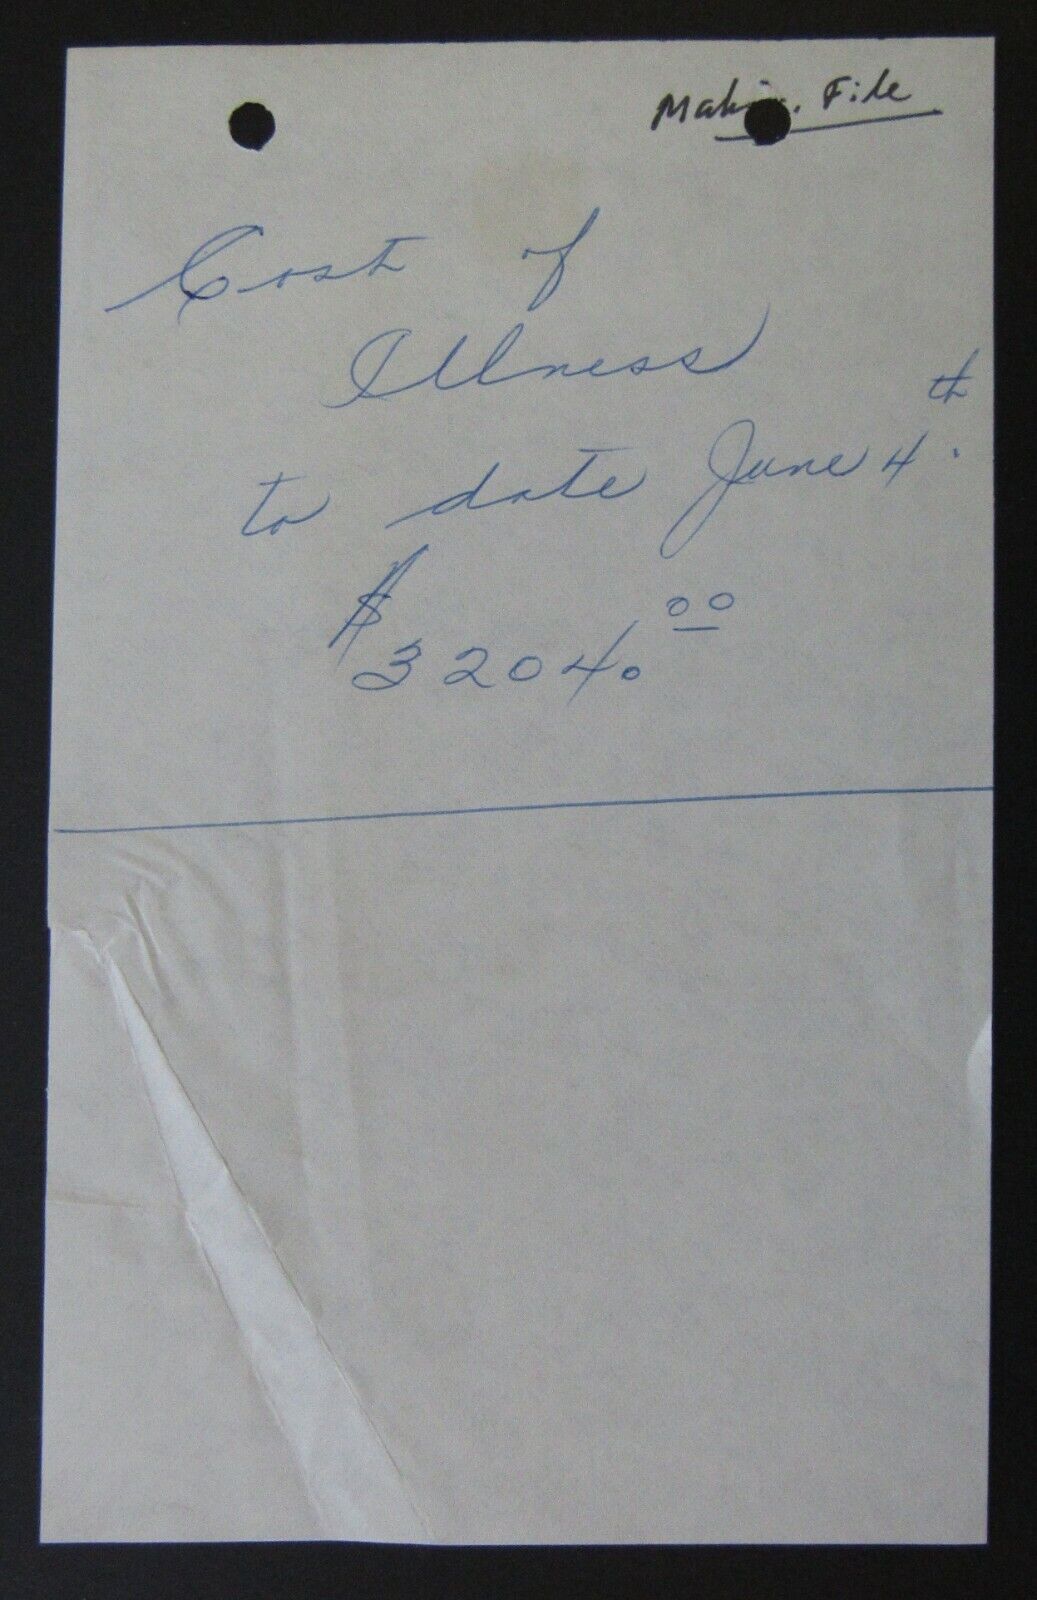 File
Cost of
Illness
to date June 4th.
$3204.00